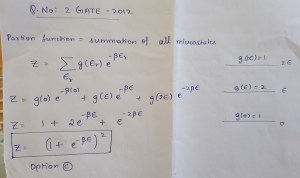 Q. No: 2 GATE - 2012
Partion function = summation of all microstates
Z = ∑ g(Eᵣ) e^-βEᵣ
Eᵣ
g(E)=1 2E
Z = g(0) e^-β(0) + g(E) e^-βE + g(2E) e^-2βE
g(E)=2 E
Z = 1 + 2e^-βE + e^-2βE
g(0)=1 0
Z = (1 + e^-βE)^2
Option C